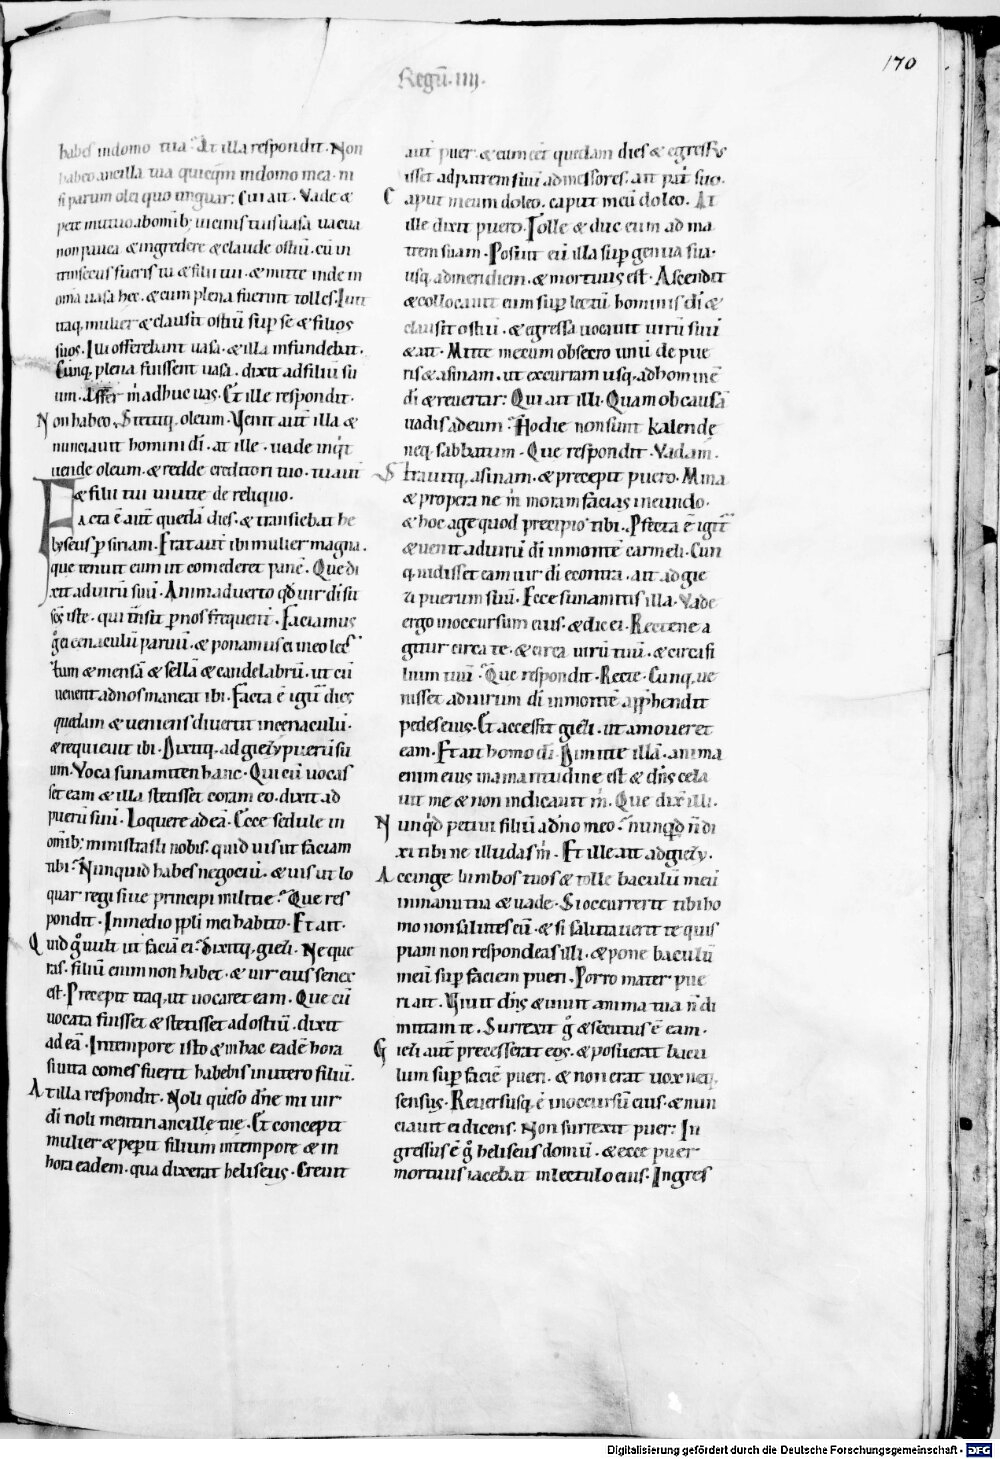 170
Regū. IIII.
habes in domo tua? At illa respondit. Non
habeo ancilla tua quicq̄m in domo mea. ni
si parum olei quo unguar. Cui ait. Vade &
pete mutuo ab omnib; uicinis tuis uasa uacua
non pauca. & ingredere & claude ostiū. cū in
trinsecus fueris tu & filii tui. & mitte inde in
omia uasa hec. & cum plena fuerint tolles. Iuit
itaq, mulier & clausit ostiū sup se & filios
suos. Illi offerebant uasa. & illa infundebat.
Cūnq, plena fuissent uasa. dixit ad filiū su
um. Affer m̄ adhuc uas. Et ille respondit.
Non habeo. Stetitq, oleum. Venit aut̄ illa &
nunciauit homini dī. at ille. uade inq̄t
uende oleum. & redde creditori tuo. tu aut̄
& filii tui uiuite de reliquo.
Facta ē aut̄ quedā dies. & transiebat he
lyseus p̱ sunam. Erat aut̄ ibi mulier magna.
que tenuit eum ut comederet panē. Que di
xit ad uirū suū. Animaduerto qđ uir dī sit
scs̄ iste. qui trānsit p̱ nos frequent̄. Faciamus
g̊ ei cenaculū paruū. & ponamus ei in eo lec
tum & mensā & sellā & candelabrū. ut cū
uenerit ad nos maneat ibi. Facta ē igit̄ dies
quedam & ueniens diuertit in cenaculū.
& requieuit ibi. Dixitq. ad giezy puerū su
um. Voca sunamiten hanc. Qui cū uocas
set eam & illa stetisset coram eo. dixit ad
puerū suū. Loquere ad eā. Ecce sedule in
omib; ministrasti nobis. quid uis ut faciam
tibi? Nunquid habes negociū. & uis ut lo
quar regi siue principi militie? Que res
pondit. In medio ppli mei habito. Et ait.
Quid g̊ uult ut faciā ei? Dixitq, giezi. Ne que
ras. filiū enim non habet. & uir eius senex
est. Precepit itaq, ut uocaret eam. Que cū
uocata fuisset & stetisset ad ostiū. dixit
ad eā. In tempore isto & in hac eadē hora
si uita comes fuerit habebis in utero filiū.
At illa respondit. Noli queso dn̄e mi uir
dī noli mentiri ancille tue. Et concepit
mulier & pep̱it filium in tempore & in
hora eadem. qua dixerat heliseus. Creuit
aut̄ puer. & cum eēt quedam dies & egressus
isset ad patrem suū ad messores. ait pat̄ suo.
Caput meum doleo. caput meū doleo. At
ille dixit puero. Tolle & duc eum ad ma
trem suam. Posuit eū illa sup̱ genua sua.
usq, ad meridiem. & mortuus est. Ascendit
& collocauit eum sup̱ lectū hominis dī &
clausit ostiū. & egressa uocauit uirū suū
& ait. Mitte mecum obsecro unū de pue
ris & asinam. ut excurram usq, ad hominē
dī & reuertar. Qui ait illi. Quam ob causā
uadis ad eum? Hodie non sunt kalende
neq, sabbatum. Que respondit. Vadam.
Strauitq, asinam. & precepit puero. Mina
& propera ne m̄ moram facias in eundo.
& hoc age quod precipio tibi. P̱fecta ē igit̄
& uenit ad uirū dī in montē carmeli. Cun
q, uidisset eam uir dī econtra. ait ad gie
zi puerum suū. Ecce sunamitis illa. Vade
ergo in occursum eius. & dic ei. Rectene a
gitur circa te. & circa uirū tuū. & circa fi
lium tuū? Que respondit. Recte. Cunq, ue
nisset ad uirum dī in montē app̱hendit
pedes eius. Et accessit giezi. ut amoueret
eam. Et ait homo dī. Dimitte illā. anima
enim eius in amaritudine est & dn̄s cela
uit me & non indicauit m̄. Que dix̄ illi.
Nunqđ petiui filiū a dn̄o meo? nunqđ n̄ di
xi tibi ne illudas m̄. Et ille ait ad giezy.
Accinge lumbos tuos & tolle baculū meū
in manu tua & uade. Si occurrerit tibi ho
mo non salutes eū. & si salutauerit te quis
piam non respondeas illi. & pone baculū
meū sup̱ faciem pueri. Porro mater pue
ri ait. Viuit dn̄s & uiuit anima tua n̄ di
mittam te. Surrexit g̊ & secutus ē eam.
Giezi aut̄ precesserat eos. & posuerat bacu
lum sup̱ faciē pueri. & non erat uox neq,
sensus. Reuersusq, ē in occursū eius. & nun
ciauit ei dicens. Non surrexit puer. In
gressus ē g̊ heliseus domū. & ecce puer
mortuus iacebat in lectulo eius. Ingres
Digitalisierung gefördert durch die Deutsche Forschungsgemeinschaft - DFG